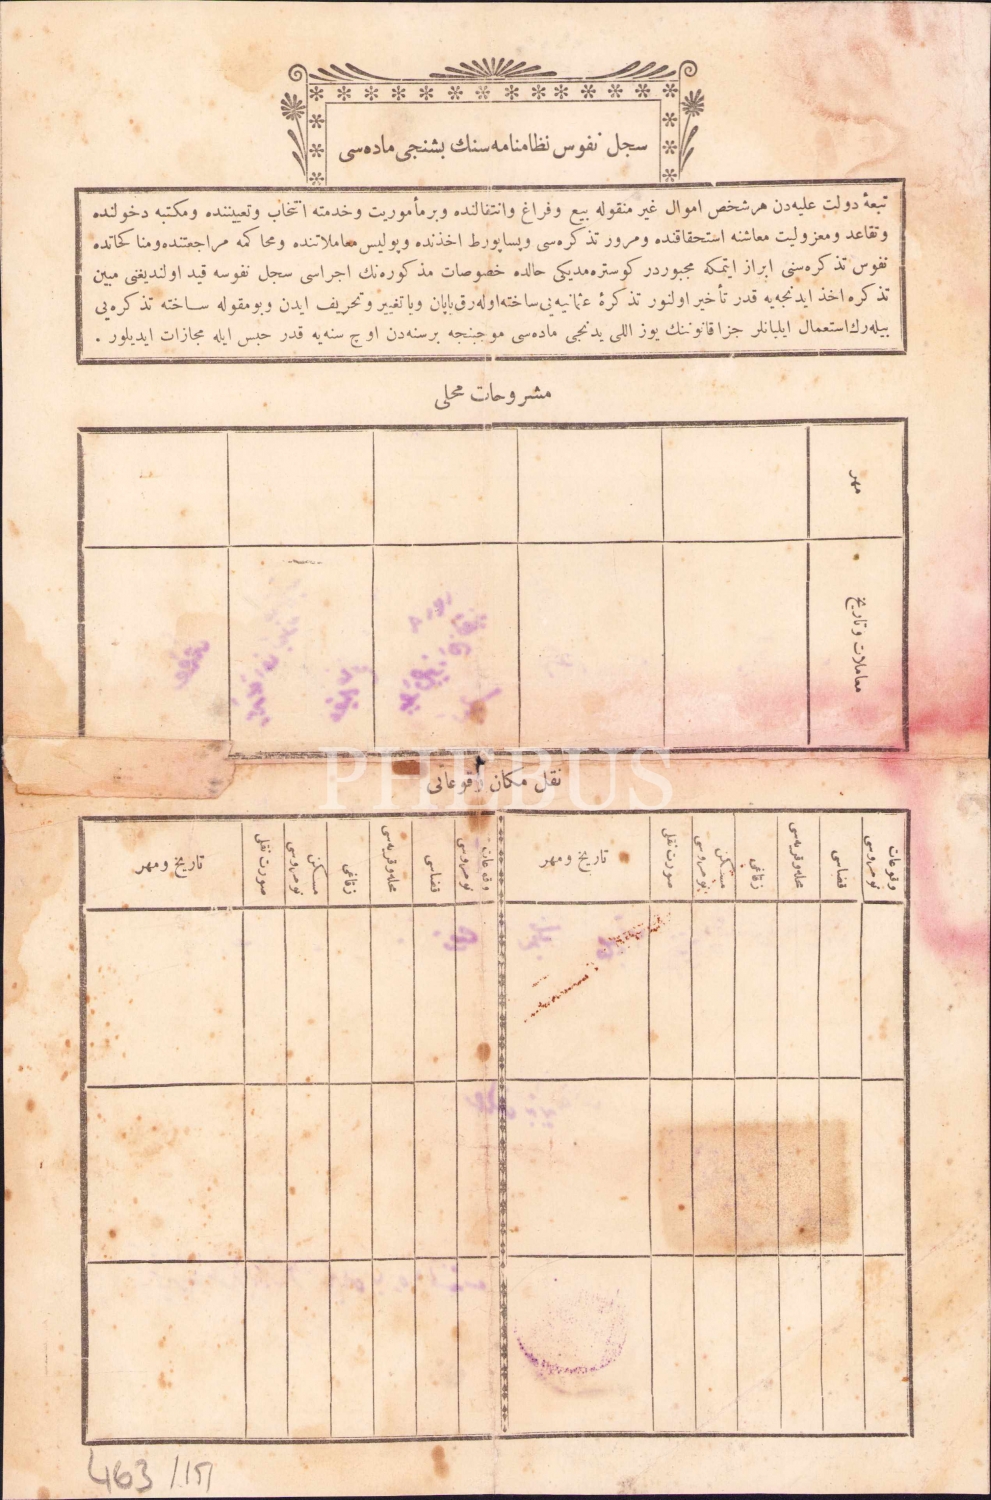 سجل نفوس نظامنامه سنك بشنجی ماده سی
تبعهٔ دولت علیه دن هر شخص اموال غیر منقوله بیع و فراغ و انتقالنده و بر مأموریت و خدمته انتخاب و تعییننده و مکتبه دخولنده
و تقاعد و معزولیت معاشنه استحقاقنده و مرور تذکره سی و پساپورط اخذنده و پولیس معاملاتنده و محاکمه مراجعتنده و مناکحاتده
نفوس تذکره سنی ابراز ایتمکه مجبوردر کوستره مدیکی حالده خصوصات مذکوره نك اجراسی سجل نفوسه قید اولندیغنی مبین
تذکره اخذ ایدنجه یه قدر تأخیر اولنور تذکرهٔ عثمانیه یی ساخته اوله رق یاپان ویا تغییر و تحریف ایدن و بومقوله ساخته تذکره یی
بیله رك استعمال ایلیانلر جزا قانوننك یوز اللی یدنجی ماده سی موجنجه بر سنه دن اوچ سنه یه قدر حبس ایله مجازات ایدیلور .
مشروحات محلی
مهر
معاملات و تاریخ
نقل مکان وقوعاتی
وقوعات نومروسی
قضاسی
محله و قریه سی
زقاغی
مسکن نومروسی
صورت نقلی
تاریخ و مهر
وقوعات نومروسی
قضاسی
محله و قریه سی
زقاغی
مسکن نومروسی
صورت نقلی
تاریخ و مهر
PHEBUS
463 /